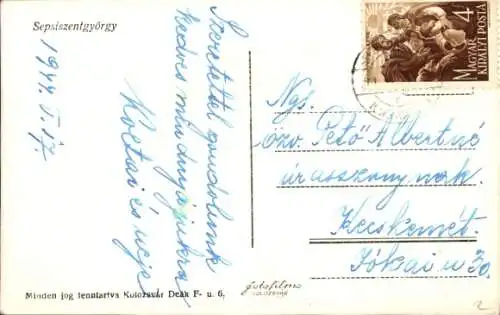 Sepsiszentgyörgy
1944. V. 17
Szeretettel gondolunk
kedves mindnyájukra
Koctai és neje
4
MAGYAR
KIRÁLYI POSTA
Ngs.
özv. Pető Albertné
úrasszonynak.
Kecskemét.
Jókai u 30.
Minden jog fenntartva Kolozsvár Deák F- u. 6.
fotofilm
KOLOZSVÁR
2